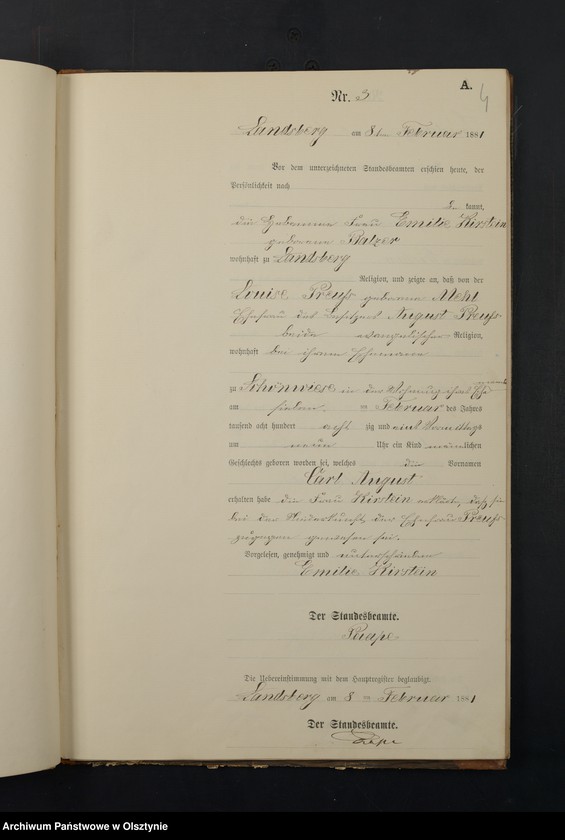 A.
4
Nr. 3
Landsberg am 8ten Februar 1881
Vor dem unterzeichneten Standesbeamten erschien heute, der
Persönlichkeit nach
kannt,
die Hebamme Frau Emilie Kirstein
geborene Balzer
wohnhaft zu Landsberg
Religion, und zeigte an, daß von der
Louise Preuß geborene Mehl
Ehefrau des Besitzers August Preuß
beide evangelischer Religion,
wohnhaft bei ihrem Ehemanne
zu Schönwiese in der Wohnung ihres
am sieben ten Februar des Jahres
tausend acht hundert acht zig und eins Vormittags
um neun Uhr ein Kind männlichen
Geschlechts geboren worden sei, welches die Vornamen
Carl August
erhalten habe die Frau Kirstein erklärte, daß sie
bei der Niederkunft der Ehefrau Preuß
zugegen gewesen sei.
Vorgelesen, genehmigt und unterschrieben
Emilie Kirstein
Der Standesbeamte.
Die Uebereinstimmung mit dem Hauptregister beglaubigt.
Landsberg am 8 ten Februar 1881
Der Standesbeamte.
Archiwum Państwowe w Olsztynie